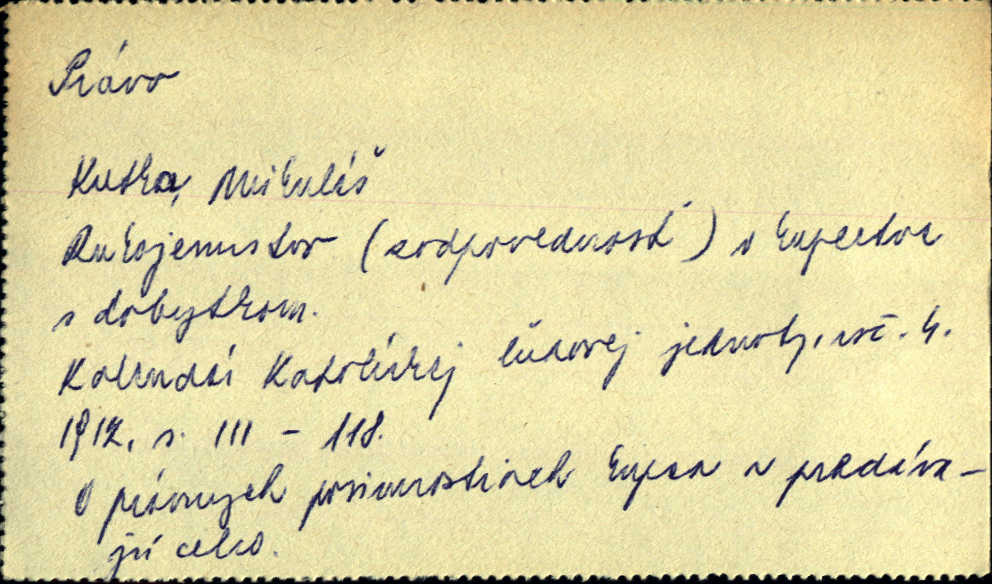 Právo
Kutka, Mikuláš
Rukojemstvo (zodpovednosť) v kupectve
s dobytkom.
Kalendár Katolíckej ľudovej jednoty, roč. 4.
1912, s. 111 - 118.
O právnych povinnostiach kupca a predáva-
júceho.